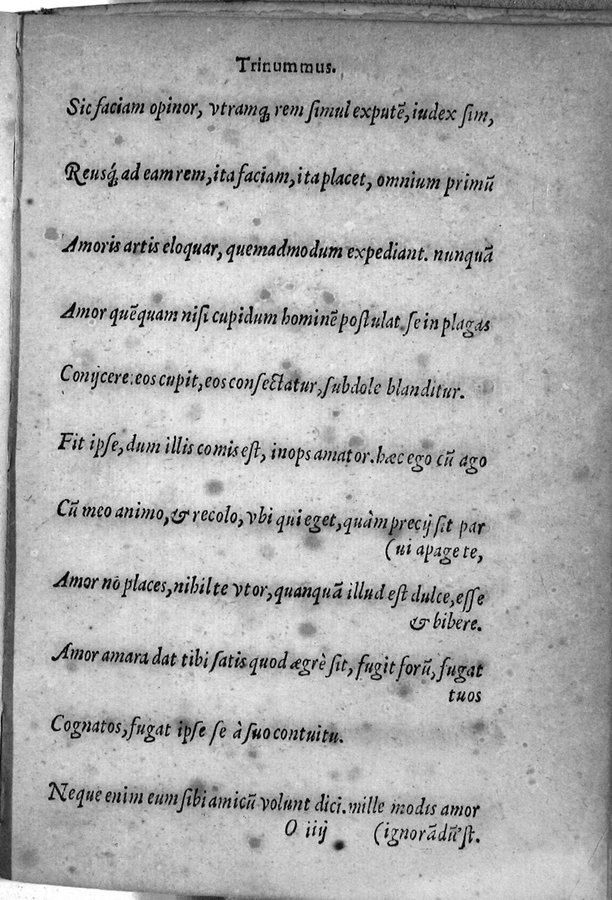 Trinummus.
Sic faciam opinor, vtramq́; rem ſimul exputẽ, iudex ſim,
Reusq́; ad eam rem, ita faciam, ita placet, omnium primũ
Amoris artis eloquar, quemadmodum expediant. nunquã
Amor quẽquam niſi cupidum hominẽ poſtulat ſe in plagas
Conijcere: eos cupit, eos conſectatur, ſubdole blanditur.
Fit ipſe, dum illis comis eſt, inops amator. hæc ego cũ ago
Cũ meo animo, & recolo, vbi qui eget, quàm precij ſit par
(ui apage te,
Amor nõ places, nihil te vtor, quanquã illud eſt dulce, eſſe
& bibere.
Amor amara dat tibi ſatis quod ægrè ſit, fugit forũ, fugat
tuos
Cognatos, fugat ipſe ſe à ſuo contuitu.
Neque enim eum ſibi amicũ volunt dici. mille modis amor
O iiij (ignorãdũ'ſt.